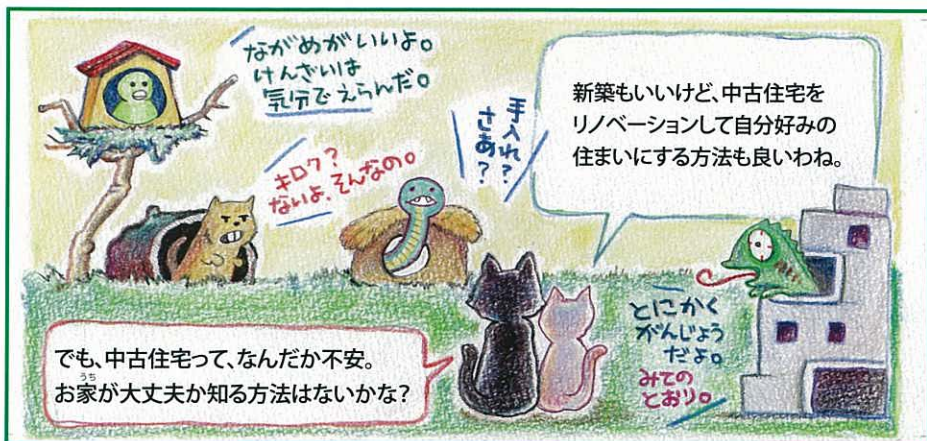 ながめがいいよ。
けんざいは
気分でえらんだ。
キロク?
ないよ、そんなの。
手入れ?
さあ?
新築もいいけど、中古住宅を
リノベーションして自分好みの
住まいにする方法も良いわね。
とにかく
がんじょう
だよ。
みての
とおり。
でも、中古住宅って、なんだか不安。
うち
お家が大丈夫か知る方法はないかな?